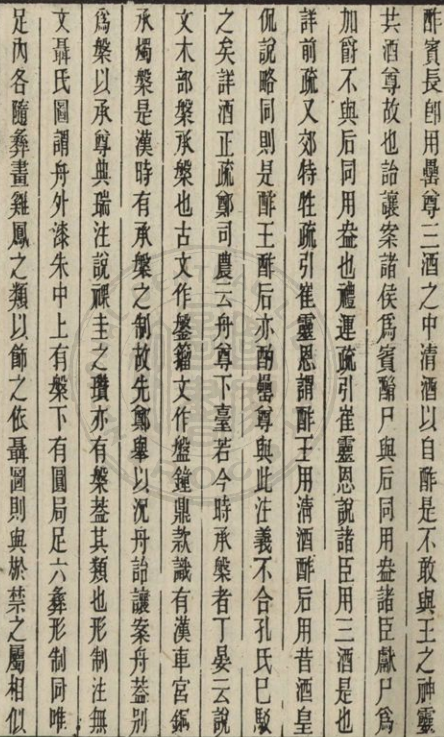 酢賓長卽用罍尊三酒之中清酒以自酢是不敢與王之神靈
共酒尊故也詒讓案諸侯爲賓酳尸與后同用盎諸臣獻尸爲
加爵不與后同用盎也禮運疏引崔靈恩說諸臣用三酒是也
詳前疏又郊特牲疏引崔靈恩謂酢王用清酒酢后用昔酒皇
侃說略同則是酢王酢后亦酌罍尊與此注義不合孔氏巳駁
之矣詳酒正疏鄭司農云舟尊下臺若今時承槃者丁晏云說
文木部槃承槃也古文作鎜籀文作盤鐘鼎款識有漢車宮銅
承燭槃是漢時有承槃之制故先鄭舉以況舟詒讓案舟蓋別
爲槃以承尊典瑞注說祼圭之瓚亦有槃蓋其類也形制注無
文聶氏圖謂舟外漆朱中上有槃下有圓局足六彝形制同唯
足內各隨彝畫雞鳳之類以飾之依聶圖則與於禁之屬相似